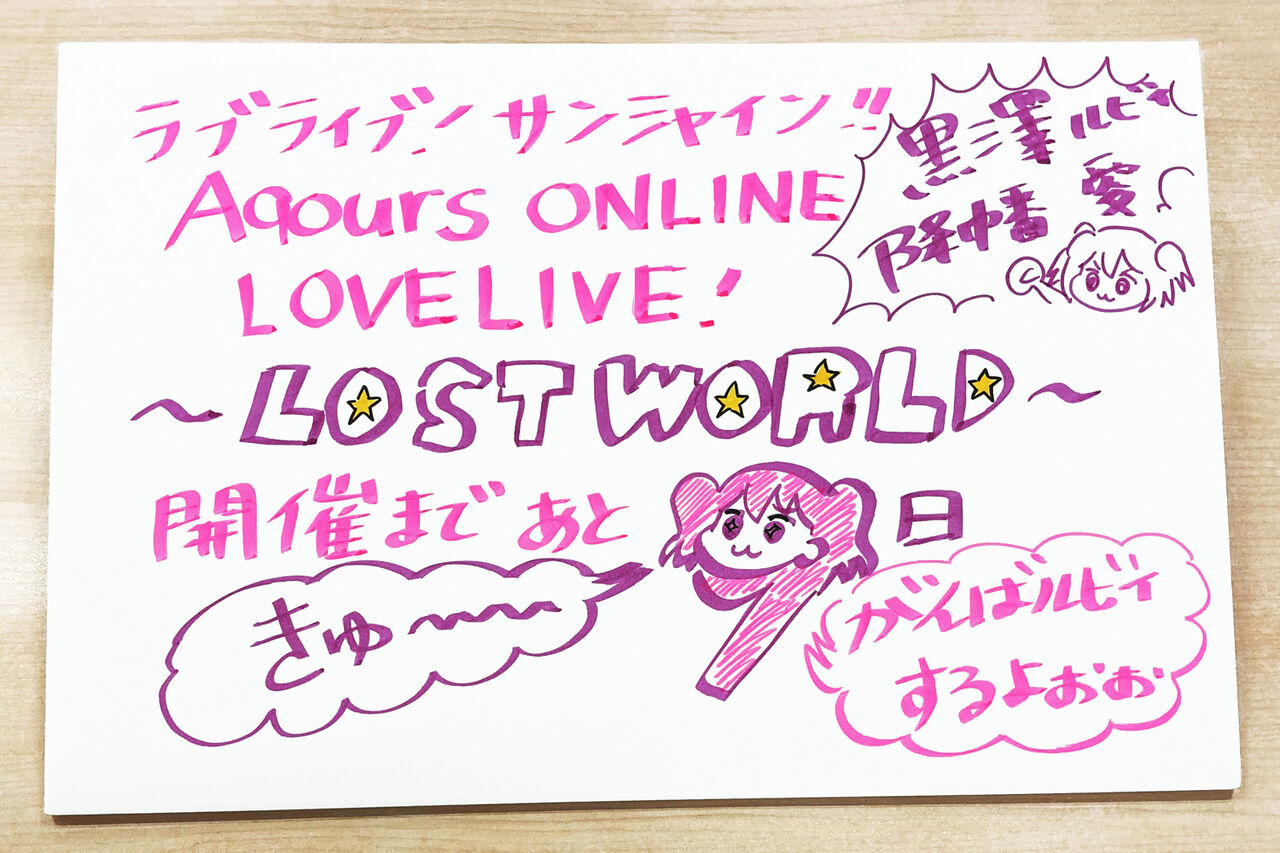 ラブライブ!サンシャイン!!
Aqours ONLINE
LOVELIVE!
〜LOST WORLD〜
開催まであと9日
黒澤ルビィ
降幡 愛
きゅ〜〜〜
がんばルビィ
するよぉぉ